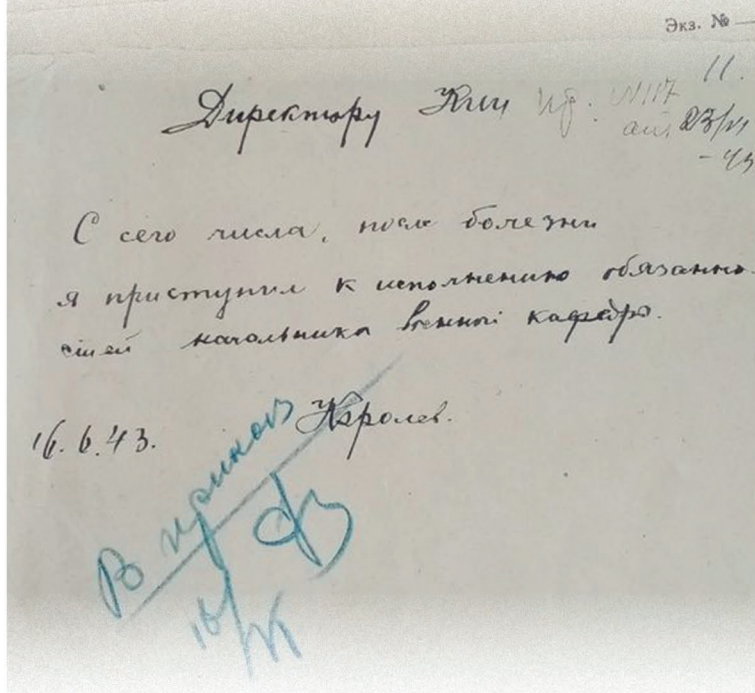 Экз. №
11.
Директору Кии пр. №117
от 23/VI
-43
С сего числа, после болезни
я приступил к исполнению обязанно-
стей начальника военной кафедры.
16.6.43. Королев.
В приказ
16/VI